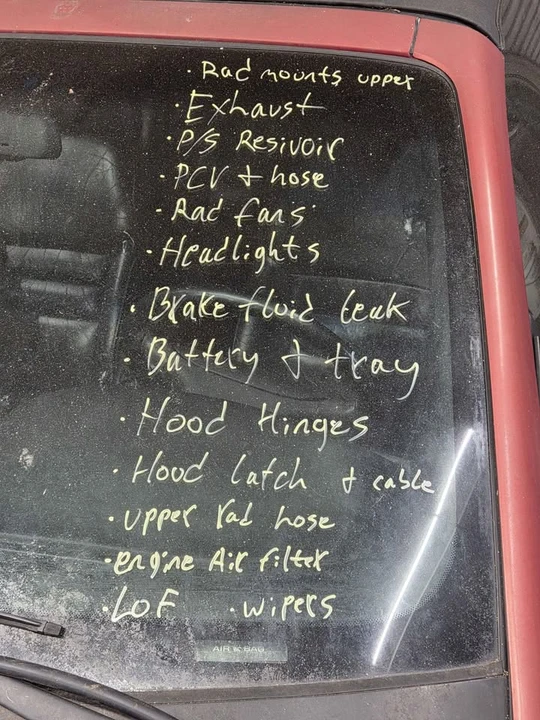 · Rad mounts upper
· Exhaust
· P/S Resivoir
· PCV & hose
· Rad fans
· Headlights
· Brake fluid leak
· Battery & tray
· Hood Hinges
· Hood latch & cable
· upper rad hose
· engine Air filter
· LOF · wipers
AIRBAG